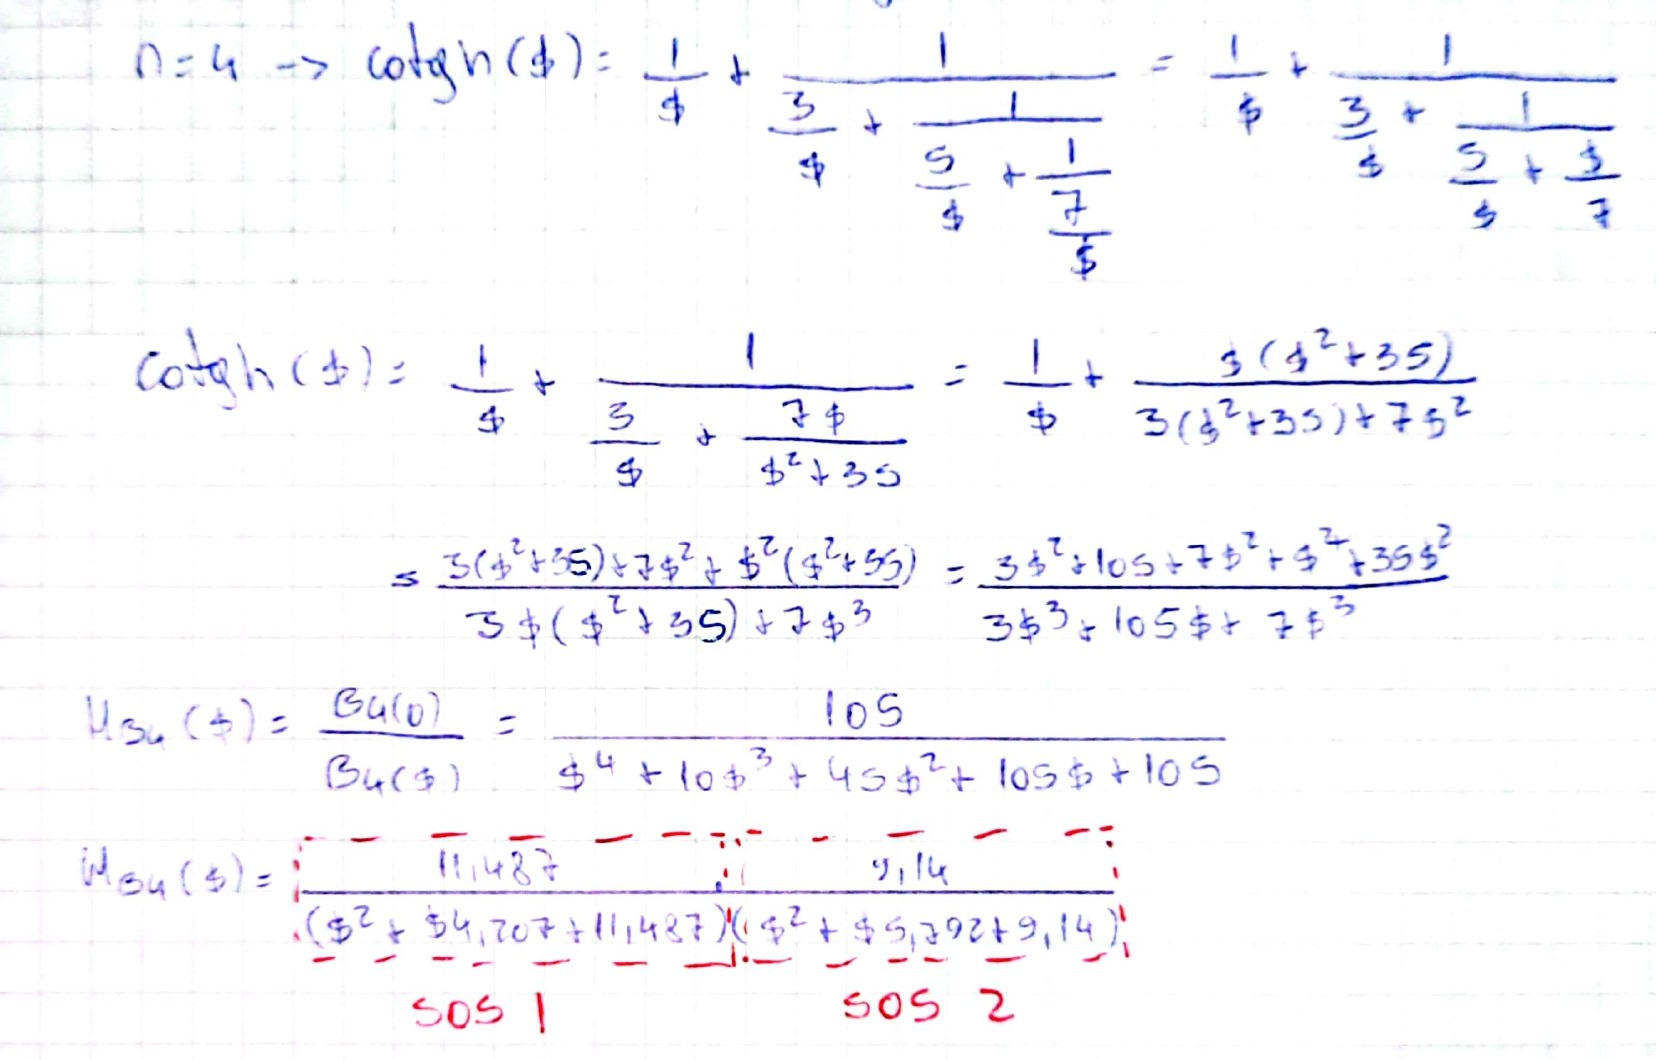 n=4 -> cotgh($) = 1/$ + 1/(3/$ + 1/(5/$ + 1/(7/$))) = 1/$ + 1/(3/$ + 1/(5/$ + $/7))
cotgh($) = 1/$ + 1/(3/$ + 7$/($²+35)) = 1/$ + $($²+35)/(3($²+35)+7$²)
= (3($²+35)+7$²+$²($²+35))/(3$($²+35)+7$³) = (3$²+105+7$²+$⁴+35$²)/(3$³+105$+7$³)
HB4($) = B4(0)/B4($) = 105/($⁴+10$³+45$²+105$+105)
HB4($) = 11,487/($²+$4,207+11,487) 9,14/($²+$5,792+9,14)
SOS 1 SOS 2